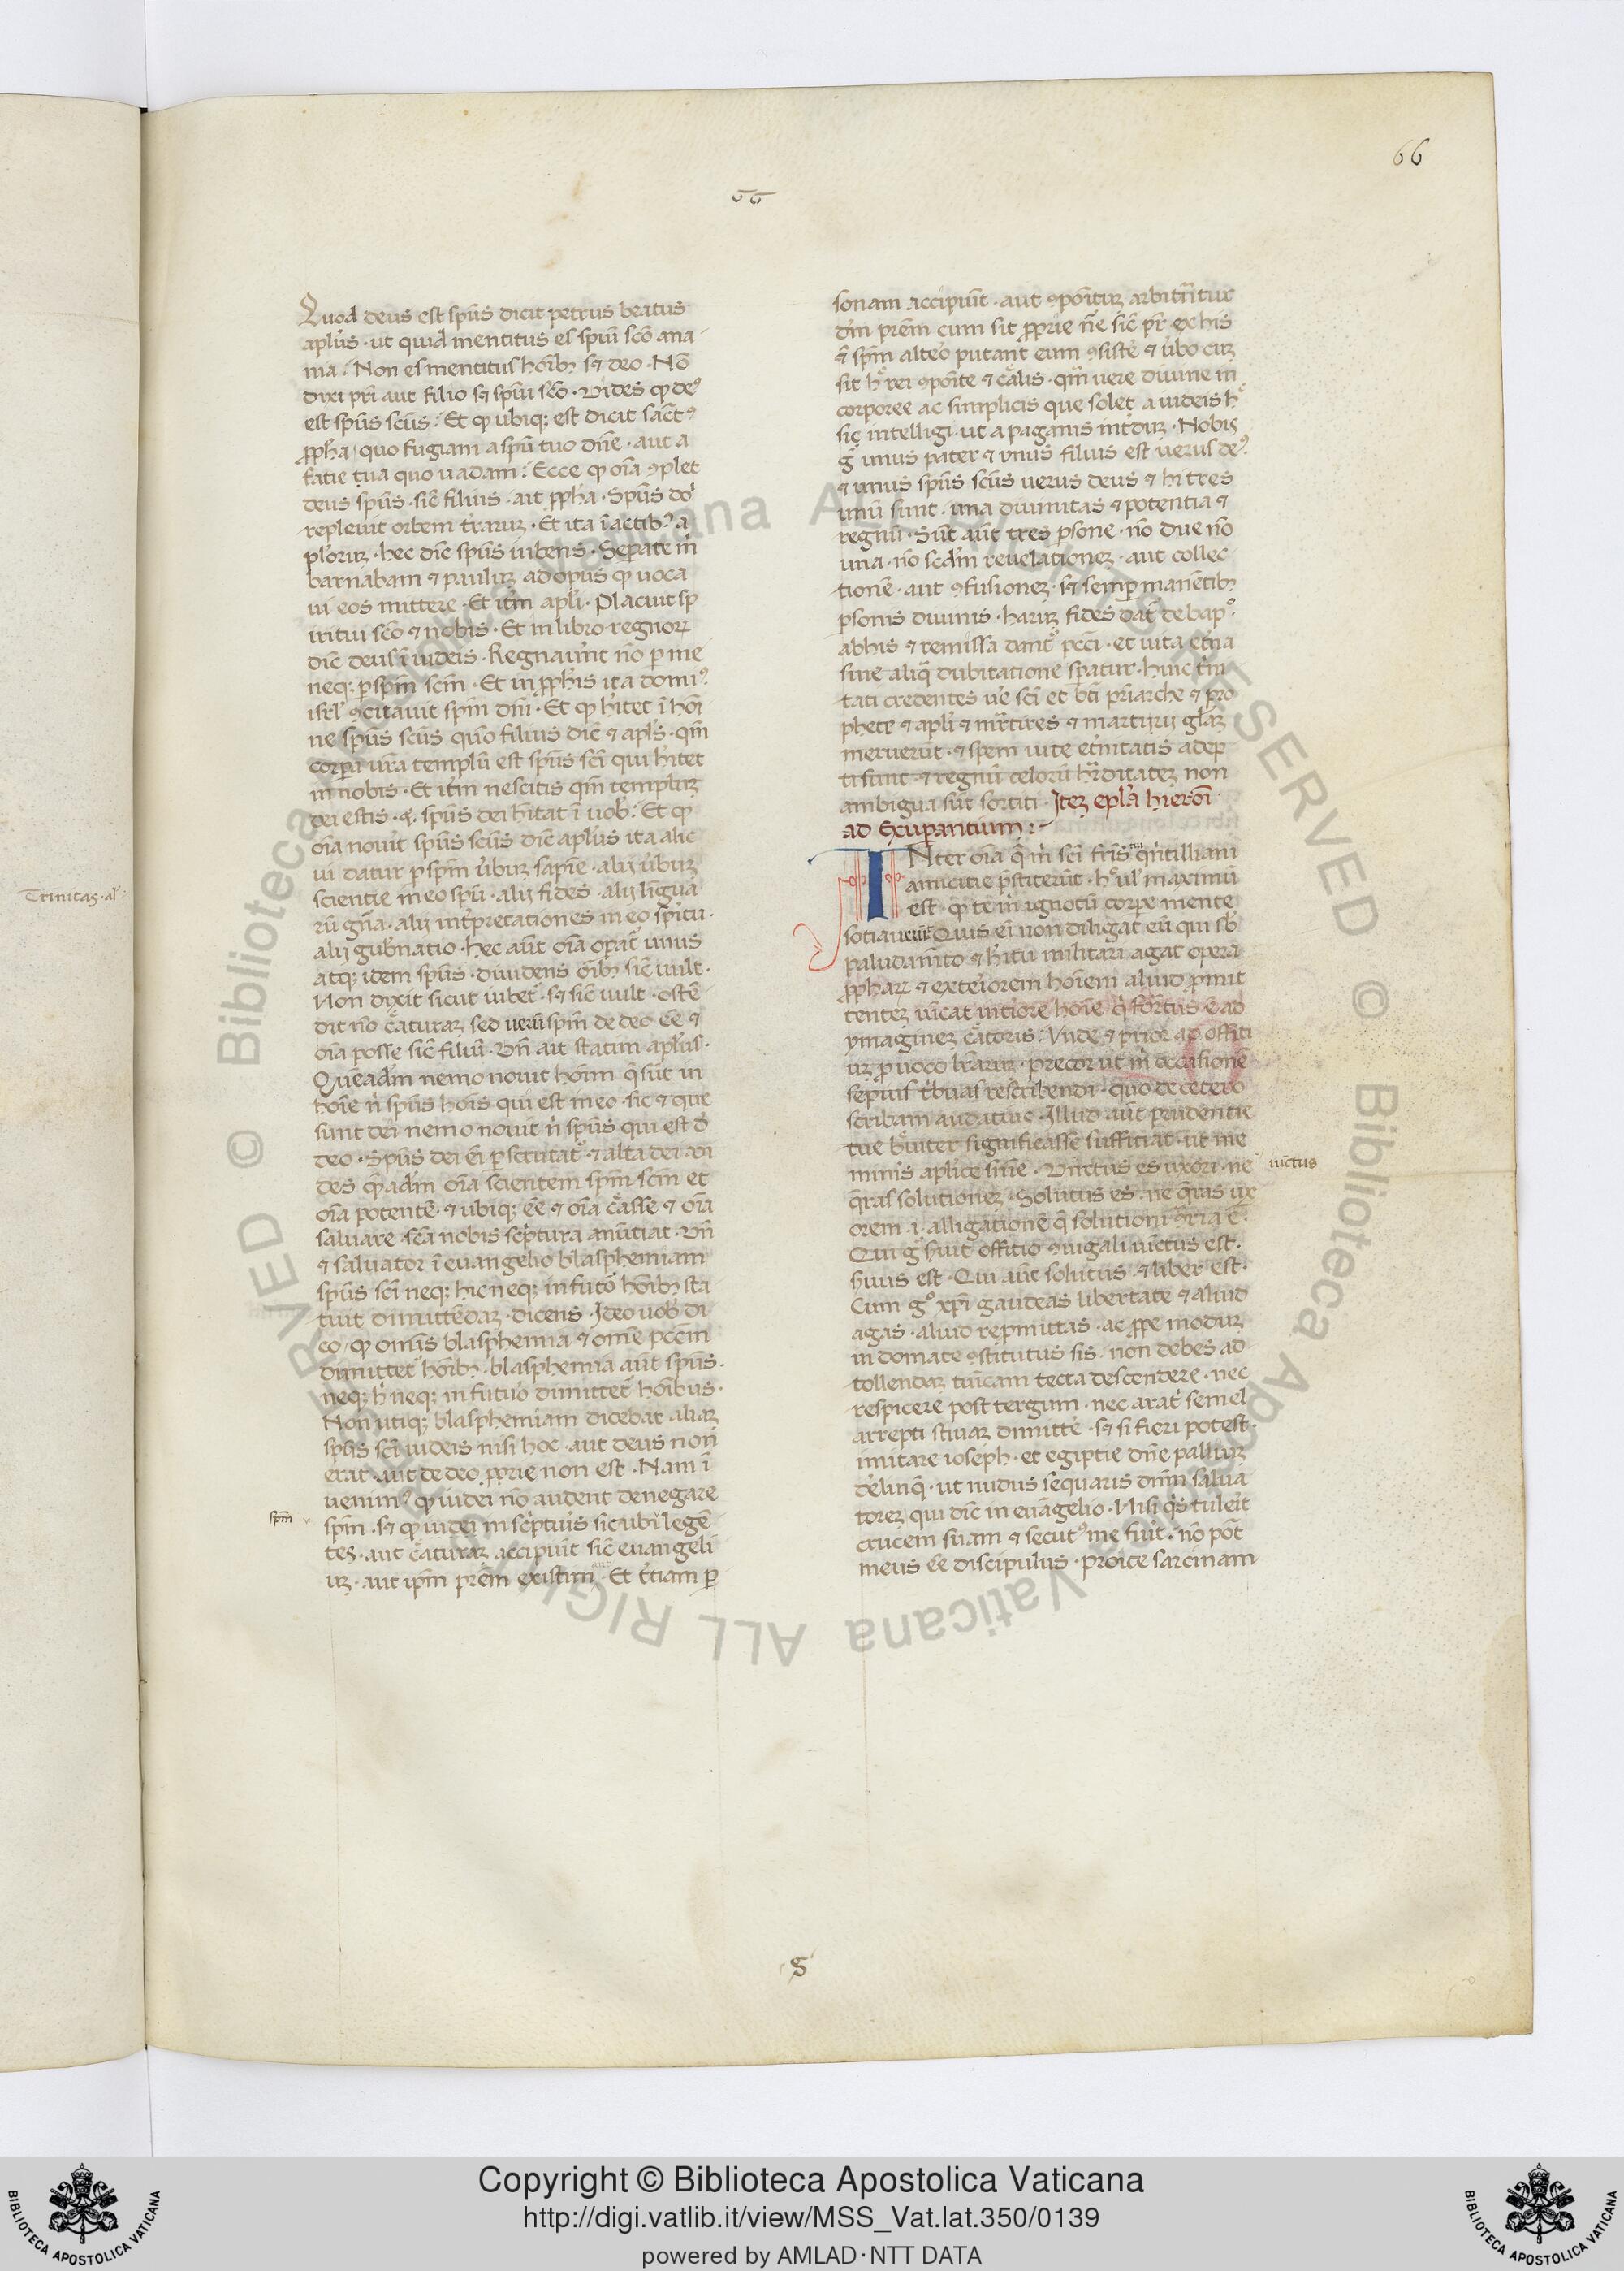 66
66
Quod deus est spūs dicit petrus beatus
aplūs · ut quid mentitus es spūi scō ana
nia? Non es mentitus hoībꝫ sꝫ deo · Nō
dixi prī aut filio sꝫ spūi scō · Vides qꝫ deꝰ
est spūs scūs? Et qꝫ ubiqꝫ est dicit sāctꝰ
ꝓpha · quo fugiam a spū tuo dn̄e · aut a
facie tua quo uadam? Ecce qꝫ oīa ꝯplet
deus spūs · sic̄ filius · ait ꝓpha · Spūs do
repleuit orbem t̄rarꝫ · Et ita ī actibꝫ a
plorꝫ · hec dic̄ spūs iubens · Seꝑate m̄
barnabam ⁊ paulū ad opus qꝫ uoca
ui eos mittere · Et itm̄ apl̄i · Placuit sp
iritui scō ⁊ nobis · Et in libro regnoꝝ
dic̄ deus ī iudeis · Regnauert nō ꝑ me
neqꝫ ꝑ spm̄ scm̄ · Et in ꝓphis ita domiꝰ
isrl̄ ꝯcitauit spm̄ dn̄i · Et qꝫ hītet ī hoī
ne spūs scūs quō filius dic̄ ⁊ apls̄ · qm̄
corꝑa ur̄a templū est spūs scī qui hītet
in nobis · Et itm̄ nescitis qm̄ templū
dei estis · ⁊ · spūs dei hītat ī uob? Et qꝫ
oīa nouit spūs scūs dic̄ aplūs ita alic
ui datur ꝑ spm̄ ūbū sapīe · alij ūbū
scientie in eo spū · alij fides · alij lingua
rū gn̄a · alij int̄pretationes in eo sp̄itu ·
alij gub̄natio · hec aūt oīa oꝑat̄ unus
atqꝫ idem spūs · diuidens oībꝫ sic̄ uult ·
Non dixit sicut iubet̄ · sꝫ sic̄ uult · ostē
dit nō c̄aturaꝫ sed uerū spm̄ de deo eē ⁊
oīa posse sic̄ filiū · Vn̄ ait statim aplūs ·
Quēadm̄ nemo nouit hoīm q̄ sūt in
hoīe n̄ spūs hoīs qui est in eo · sic ⁊ que
sunt dei nemo nouit n̄ spūs qui est d̄
deo · Spūs dei eī ꝑscrutat̄ ⁊ alta dei · vi
des qēadm̄ oīa scientem spm̄ scm̄ et
oīa potentē · ⁊ ubiqꝫ eē ⁊ oīa c̄asse ⁊ oīa
saluare · scā nobis scptura anūtiat · Vn̄
⁊ saluator ī euangelio blasphemiam
spūs scī neqꝫ hic neqꝫ in futō hoībꝫ sta
tuit dimittēdaꝫ · dicens · Ideo uob̄ di
co · qꝫ omīs blasphemia ⁊ omē pccm̄
dimittet̄ hoībꝫ · blasphemia aūt spūs ·
neqꝫ h̄ neqꝫ in futuo dimittet̄ hoībus ·
Non utiqꝫ blasphemiam dicebat aliaꝫ
spūs scī iudeis nisi hoc · aut deus non
erat · aut de deo ꝓprie non est · Nam ī
uenimꝰ qꝫ iudei nō audent denegare
spm̄ · sꝫ qꝫ iudei in scpturis sicubi legē
tes · aut c̄aturaꝫ accipiūt sic̄ euangeli
uꝫ · aut ipm̄ prēm existim · Et t̄tiam ꝑ
Trinitas · al
spm̄
sonam accipiūt · aut ꝯponitū arbitrn̄tur
dm̄ prēm cum sit ꝓprie n̄e sic̄ pr̄ ex his
⁊ spm̄ alteo putant eum ꝯsistē ⁊ ūbo cū
sit h̄ rei ꝯpoīte ⁊ c̄alis · qm̄ uere diuine in
corporee ac simplicis que solet a iudeis h̄
sic intelligi · ut a paganis int̄dū · Nobis
ḡ unus pater ⁊ unus filius est uerus deꝰ
⁊ unus spūs scūs uerus deus ⁊ hi tres
unū sunt · una diuinitas ⁊ potentia ⁊
regnū · Sūt aūt tres ꝑsone · nō due nō
una · nō scdm̄ reuelationeꝫ · aut collec
tionē · aut ꝯfusioneꝫ · sꝫ semꝑ manētibꝫ
ꝑsonis diuinis · harū fides dat̄ de bapꝰ
ab his ⁊ remissa dant̄ pccī · et uita et̄na
sine aliq̄ dubitatione sꝑatur · huic t̄ni
tati credentes ue scī et btī pr̄iarche ⁊ pro
phete ⁊ apli ⁊ mr̄tires ⁊ martirij glaꝫ
meruerūt · ⁊ spem uite et̄nitatis adep
ti sunt · ⁊ regnū celorū hr̄ditateꝫ non
ambigua sūt sortiti · Iteꝫ epla hieroī ·
ad Exuꝑantium :
INter oīa q̄ m̄ scī fr̄is q̄ntilliani
amicitie p̄stiterūt · h̄ uľ maximū
est · qꝫ te m̄ ignotū corꝑe mente
sociauerūt · Quis eī non diligat eū qui sb̄
paludam̄to ⁊ hītu militari agat opera
ꝓpharꝝ ⁊ exteriorem hoīem aliud ꝓmit
tenteꝫ uīcat int̄iore hoīe q̄ formatus ē ad
ymagineꝫ c̄atoris? Vnde ⁊ prior ad offiti
uꝫ ꝓuoco lr̄arū · precor ut m̄ occasionē
sepius t̄buas rescribendi · quo de cetero
scribam audatiue · Illud aūt prudentie
tue b̄uiter significasse suffitiat · ut me
minis aplice snīe · Vinctus es uxori · ne
q̄ras solutioneꝫ · Solutus es · ne q̄ras ux
orem · i · alligationē q̄ solutioni ꝯ̄ria ē ·
Qui ḡ suit offitio ꝯiugali uīctus est ·
suus est · Qui aūt solutus · ⁊ liber est ·
Cum gͦ xpī gaudeas libertate ⁊ aliud
agas · aliud reꝓmittas · ac ꝓpe modū
in domate ꝯstitutus sis · non debes ad
tollendaꝫ tunicam tecta descendere · nec
respicere post tergum · nec arat̄ semel
arrepti stiuaꝫ dimittē · sꝫ si fieri potest ·
imitare ioseph · et egiptie dn̄e palliū
delinq̄ · ut nudus sequaris dnm̄ salua
toreꝫ qui dic̄ in euāgelio · Nisi qͥs tulerit
crucem suam ⁊ secutꝰ me fuīt · nō pōt
meus eē discipulus · proice sarcinam
uīctus
g
Copyright © Biblioteca Apostolica Vaticana
http://digi.vatlib.it/view/MSS_Vat.lat.350/0139
powered by AMLAD·NTT DATA
BIBLIOTECA APOSTOLICA VATICANA
BIBLIOTECA APOSTOLICA VATICANA
© Biblioteca Apostolica Vaticana ALL RIGHTS RESERVED © Biblioteca Apostolica Vaticana ALL RIGHTS RESERVED